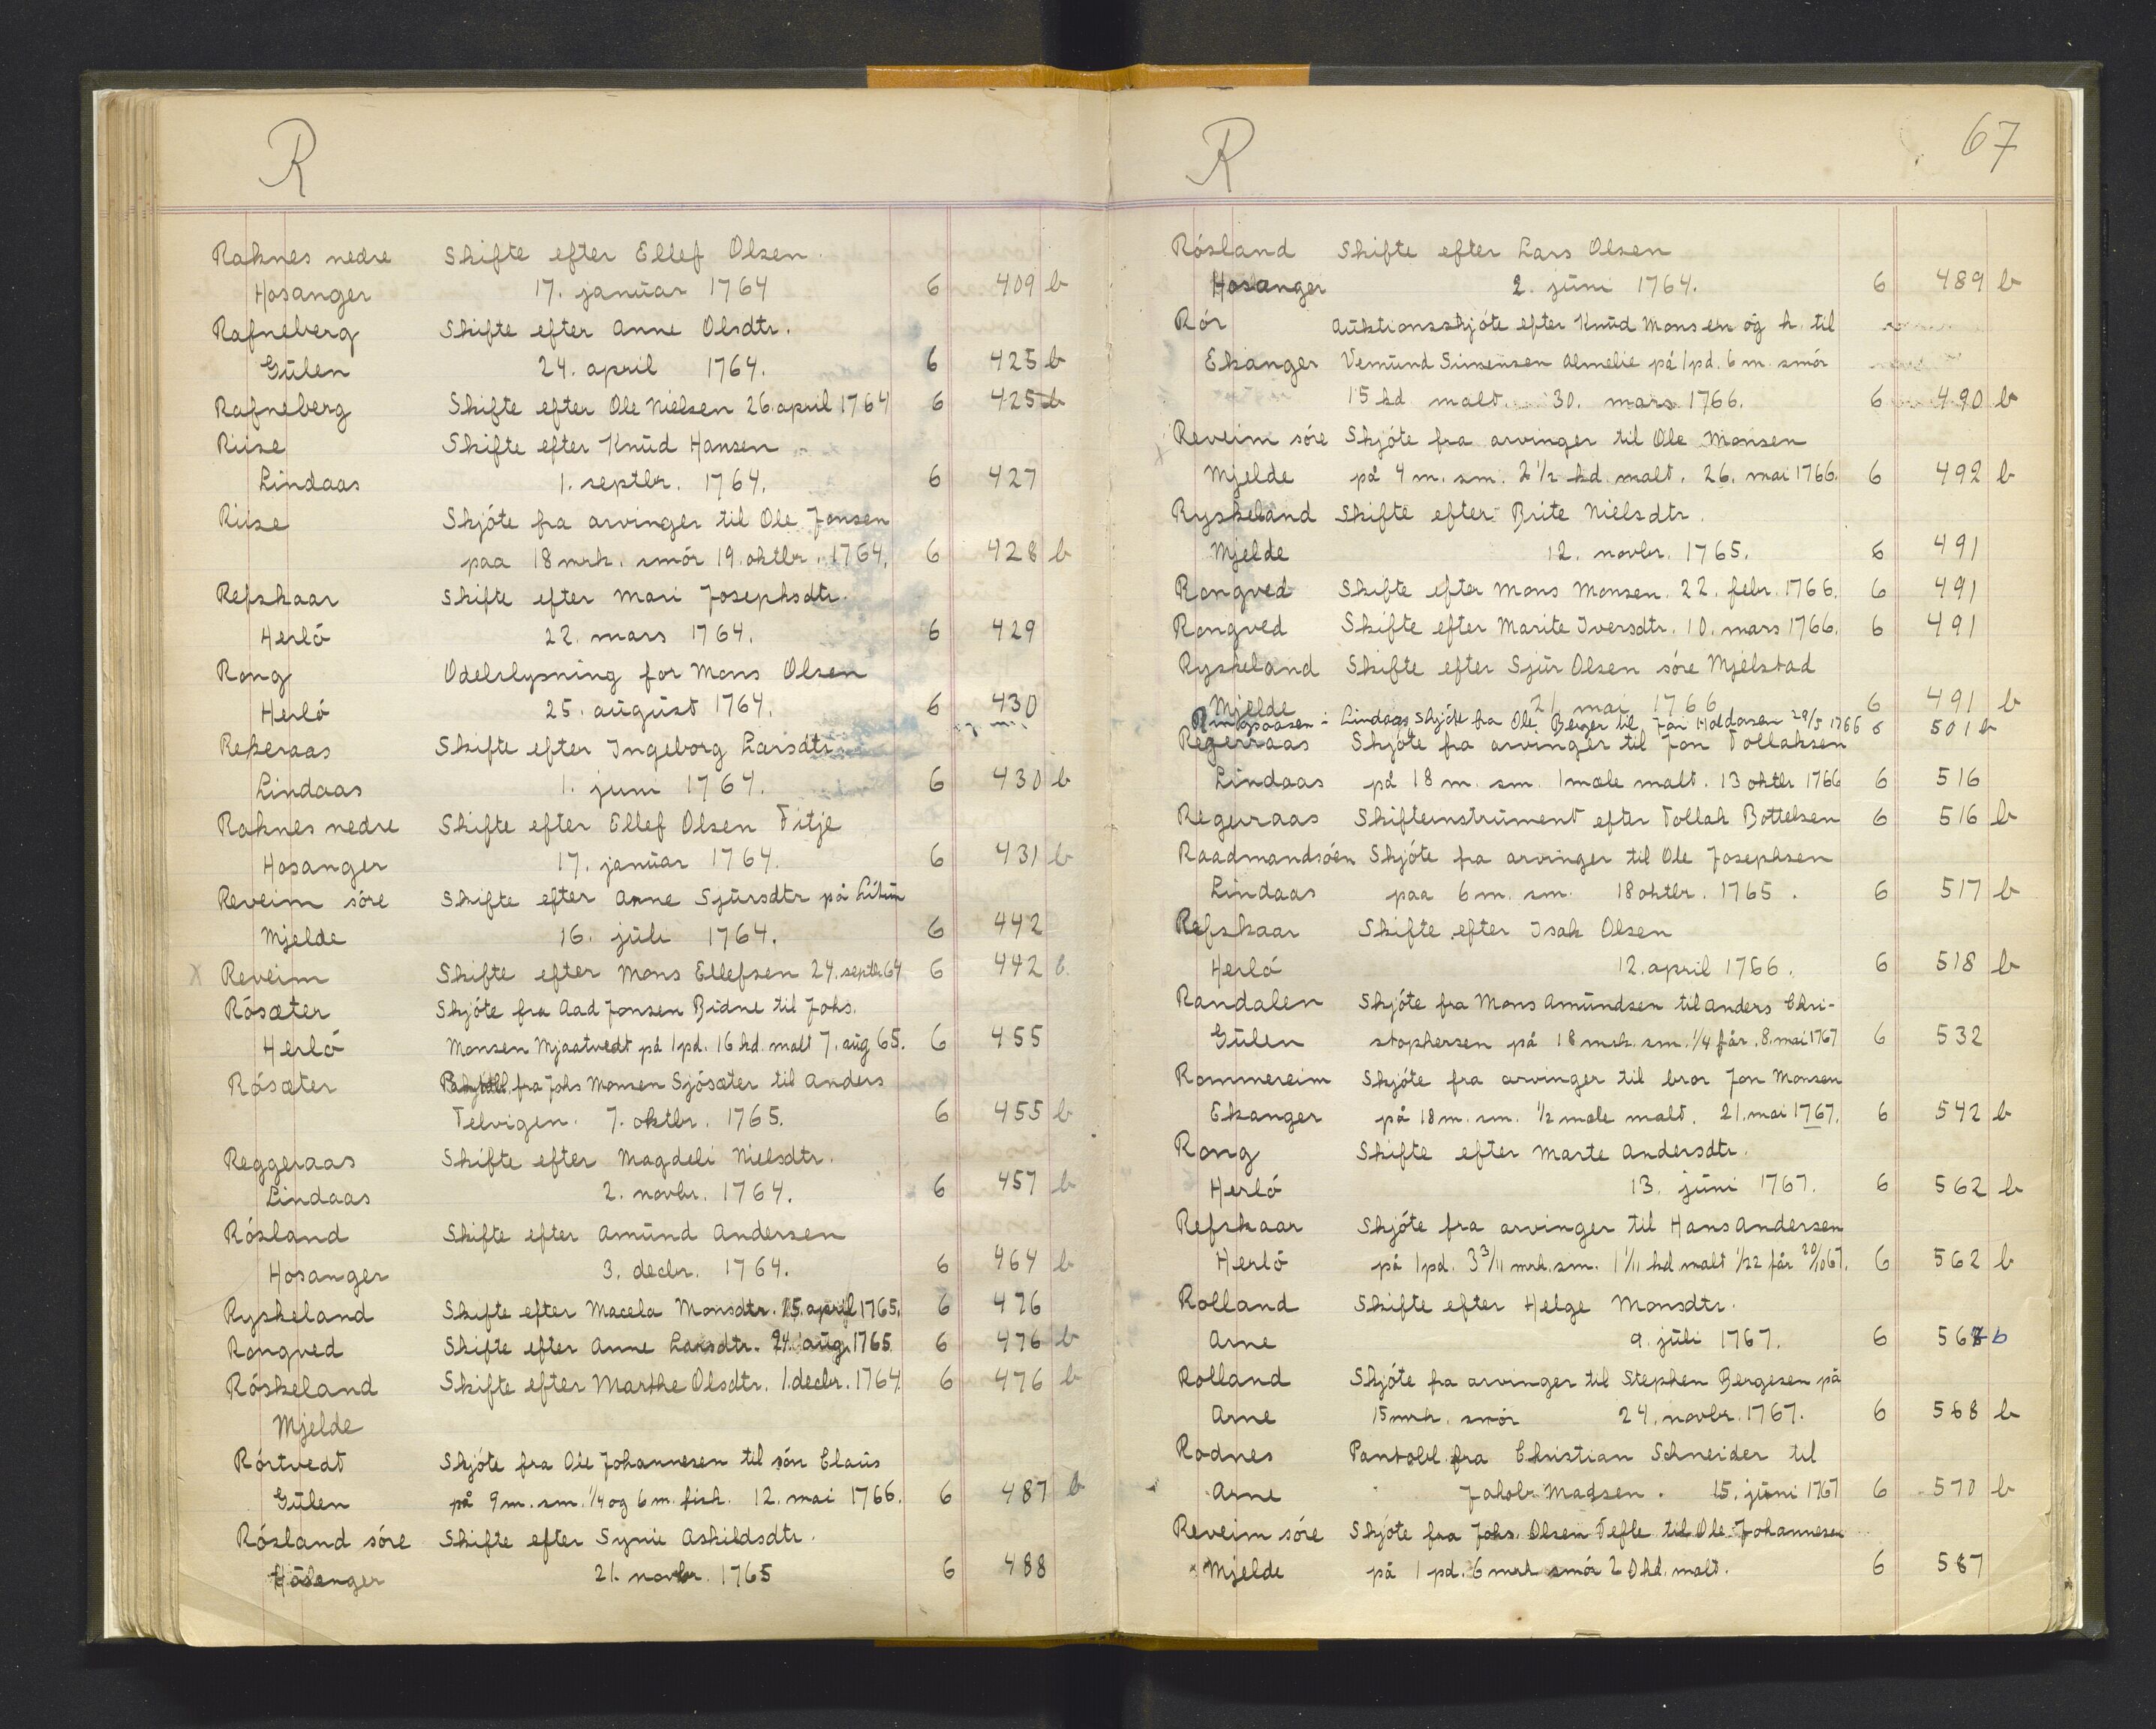 R
Raknes nedre Skifte efter Ellef Olsen.
Hosanger 17. januar 1764 6 409 b
Rafneberg Skifte efter Anne Olsdtr.
Gulen 24. april 1764. 6 425 b
Rafneberg Skifte efter Ole Nielsen 26. april 1764 6 425 b
Riise Skifte efter Knud Hansen
Lindaas 1. septbr. 1764. 6 427
Riise Skjóte fra arvinger til Ole Jonsen
paa 18 mrk. smór 19. oktbr. 1764. 6 428 b
Refskaar Skifte efter Mari Josephsdtr.
Herló 22. mars 1764. 6 429
Rong Odelslysning for Mons Olsen
Herló 25. august 1764. 6 430
Rekeraas Skifte efter Ingeborg Larsdtr.
Lindaas 1. juni 1764. 6 430 b
Raknes nedre Skifte efter Ellef Olsen Fitje
Hosanger 17. januar 1764. 6 431 b
Reveim sóre Skifte efter Anne Sjursdtr på
Mjelde 16. juli 1764. 6 442
X Reveim Skifte efter Mons Ellefsen 24. septbr. 64 6 442 b.
Rósæter Skjóte fra Aad Jonsen Bidne til Johs.
Herló Monsen Mjaatvedt på 1 pd. 16 kd. malt 7. aug 65. 6 455
Rósæter fra Johs Monsen Sjósæter til Anders
Telvigen. 7. oktbr. 1765. 6 455 b
Reggeraas Skifte efter Magdeli Nielsdtr.
Lindaas 2. novbr. 1764. 6 457 b
Rósland Skifte efter Amund Andersen
Hosanger 3. decbr. 1764. 6 464 b
Ryskeland Skifte efter Macela Monsdtr. 15. april 1765. 6 476
Rongved Skifte efter Anne Larsdtr. 24. aug. 1765 6 476 b
Róskeland Skifte efter Marthe Olsdtr. 1. decbr. 1764. 6 476 b
Mjelde
Rórtvedt Skjóte fra Ole Johannesen til són Claus
Gulen på 9 m. sm. 1/4 og 6 m. fisk. 12. mai 1766. 6 487 b
Rósland sóre Skifte efter Synie Askildsdtr.
Hosanger 21. novbr. 1765 6 488
R 67
Rósland Skifte efter Lars Olsen
Hosanger 2. juni 1764. 6 489 b
Rór Auktionsskjóte efter Knud Monsen og k. til
Ekanger Vemund Simensen Almelie på 1 pd. 6 m. smór
15 kd malt. 30. mars 1766. 6 490 b
Reveim sóre Skjóte fra arvinger til Ole Monsen
Mjelde på 4 m. sm. 2 1/2 kd. malt. 26. mai 1766. 6 492 b
Ryskeland Skifte efter Brite Nielsdtr.
Mjelde 12. novbr. 1765. 6 491
Rongved Skifte efter Mons Monsen. 22. febr. 1766. 6 491
Rongved Skifte efter Marite Iversdtr. 10. mars 1766. 6 491
Ryskeland Skifte efter Sjur Olsen sóre Mjelstad
Mjelde 21. mai 1766 6 491 b
Ringsaasen i Lindaas Skjóte fra Ole Berger til Jan Holdorsen 29/5 1766 6 501 b
Regerraas Skjóte fra arvinger til Jon Tollaksen
Lindaas på 18 m. sm. 1 mæle malt. 13 oktbr 1766 6 516
Regerraas Skifteinstrument efter Tollak Bottelsen 6 516 b
Raadmandsóen Skjóte fra arvinger til Ole Josephsen
Lindaas paa 6 m. sm. 18 oktbr. 1765. 6 517 b
Refskaar Skifte efter Isak Olsen
Herló 12. april 1766. 6 518 b
Randalen Skjóte fra Mons Amundsen til Anders Chri-
Gulen stophersen på 18 mrk. sm. 1/4 får. 8. mai 1767 6 532
Rommereim Skjóte fra arvinger til bror Jon Monsen
Ekanger på 18 m. sm. 1/2 mæle malt. 21. mai 1767. 6 542 b
Rong Skifte efter Marte Andersdtr.
Herló 13. juni 1767. 6 562 b
Refskaar Skjóte fra arvinger til Hans Andersen
Herló på 1 pd. 3 3/11 mrk. sm. 1 1/11 kd malt 1/22 får 20/10 67. 6 562 b
Rolland Skifte efter Helge Monsdtr.
Arne 9. juli 1767. 6 567 b
Rolland Skjóte fra arvinger til Stephen Bergesen på
Arne 15 mrk. smór 24. novbr. 1767. 6 568 b
Rodnes Pantobl. fra Christian Schneider til
Arne Jakob Madsen. 15. juni 1767 6 570 b
Reveim sóre Skjóte fra Johs. Olsen Tefle til Ole Johannesen
Mjelde på 1 pd. 6 mrk smór 20 kd. malt. 6 587